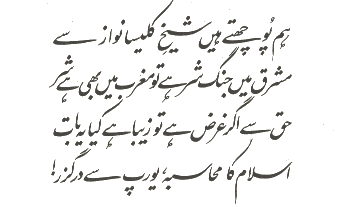 ہم پُوچھتے ہیں شیخِ کلیسا نواز سے
مشرق میں جنگ شر ہے تو مغرب میں بھی ہے شر
حق سے اگر غرض ہے تو زیبا ہے کیا یہ بات
اسلام کا محاسبہ، یورپ سے درگزر!